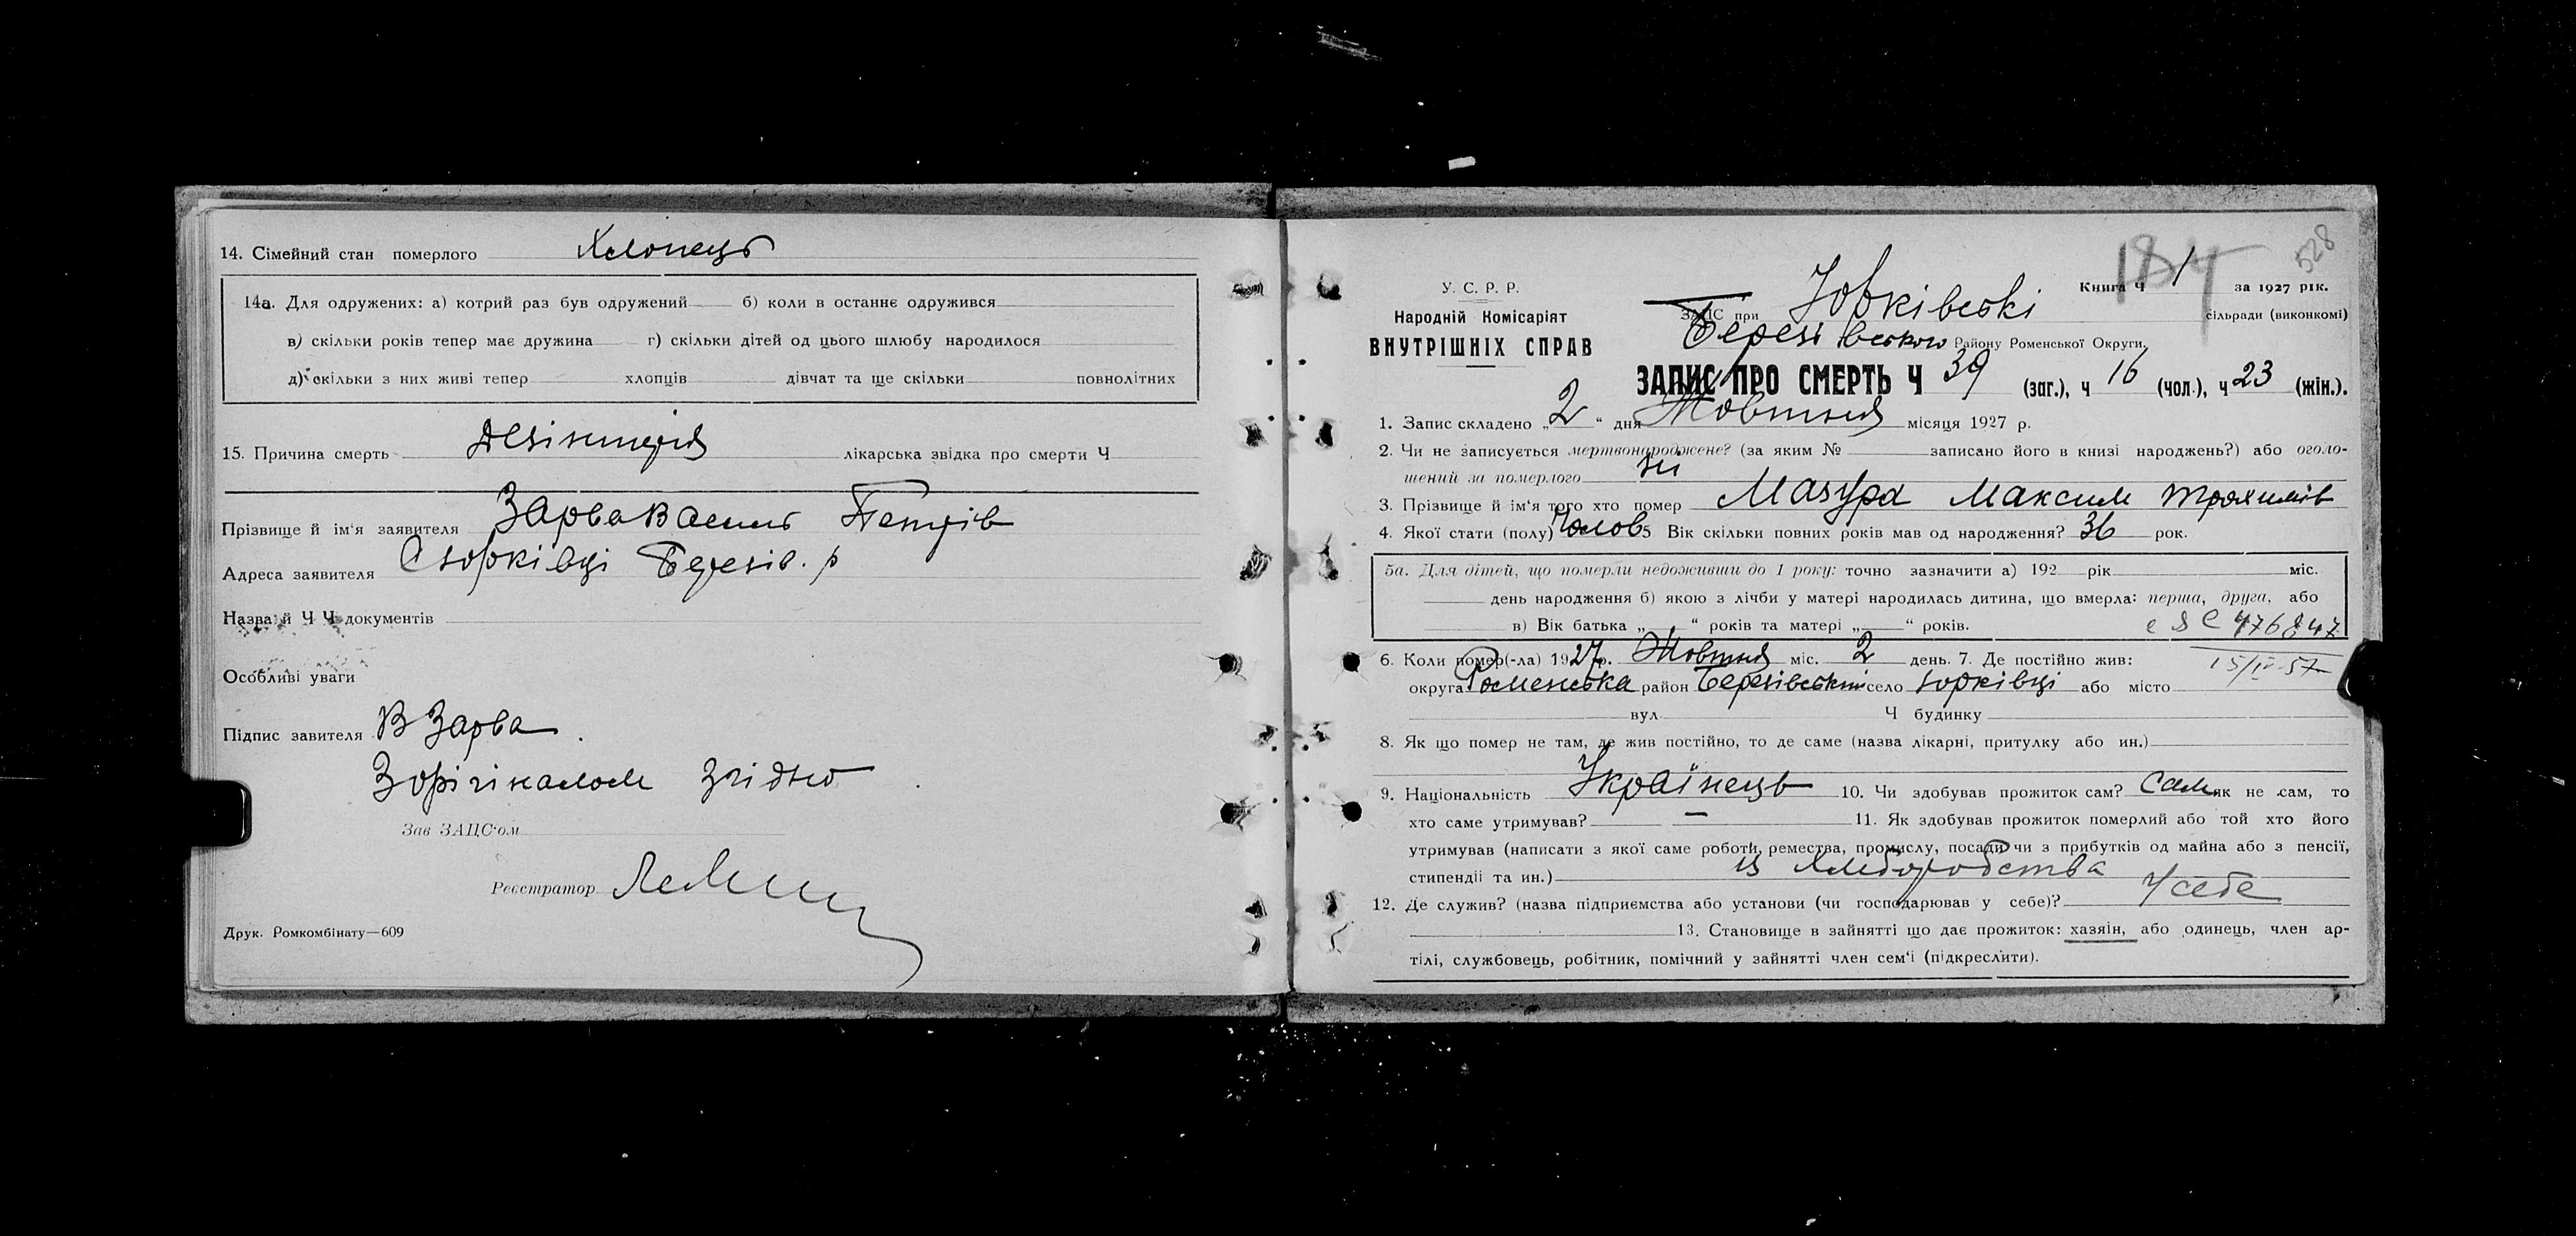 14. Сімейний стан померлого Хлопець
14а. Для одружених: а) котрий раз був одружений б) коли в останнє одружився
в) скільки років тепер має дружина г) скільки дітей од цього шлюбу народилося
д) скільки з них живі тепер хлопців дівчат та ще скільки повнолітних
15. Причина смерть Дезінтерія лікарська звідка про смерти Ч
Прізвище й ім'я заявителя Зарва Василь Петрів
Адреса заявителя С Юрківці Березів. р
Назва й Ч Ч документів
Особливі уваги
Підпис завителя В Зарва
З орігіналом згідно
Зав ЗАЦС'ом
Реєстратор
Друк. Ромкомбінату—609
184 528
У. С. Р. Р.
Книга Ч 1 за 1927 рік.
Народній Комісаріят
ВНУТРІШНІХ СПРАВ
ЗАЦС при Юрківські сільради (виконкомі)
Березівського Району Роменської Округи.
ЗАПИС ПРО СМЕРТЬ Ч 39 (заг.), ч 16 (чол.), ч 23 (жін.).
1. Запис складено „2“ дня Жовтня місяця 1927 р.
2. Чи не записується мертвонароджене? (за яким № записано його в книзі народжень?) або оголо-
шений за померлого ні
3. Прізвище й ім'я того хто помер Мазура Максим Трохимів
4. Якої стати (полу) Чолов 5 Вік скільки повних років мав од народження? 36 рок.
5а. Для дітей, що померли недоживши до 1 року: точно зазначити а) 192 рік міс.
день народження б) якою з лічби у матері народилась дитина, що вмерла: перша, друга, або
в) Вік батька „ “ років та матері „ “ років.
476847
6. Коли помер(-ла) 1927р. Жовтня міс. 2 день. 7. Де постійно жив:
15/IV-57
округа Роменська район Березівський село Юрківці або місто
вул Ч будинку
8. Як що помер не там, де жив постійно, то де саме (назва лікарні, притулку або ин.)
9. Національність Українець 10. Чи здобував прожиток сам? Сам як не сам, то
хто саме утримував? — 11. Як здобував прожиток померлий або той хто його
утримував (написати з якої саме роботи, ремества, промислу, посади чи з прибутків од майна або з пенсії,
стипендії та ин.) із хліборобства
12. Де служив? (назва підприємства або установи (чи господарював у себе)? У себе
13. Становище в зайнятті що дає прожиток: хазяїн, або одинець, член ар-
тілі, службовець, робітник, помічний у зайнятті член сем'ї (підкреслити).